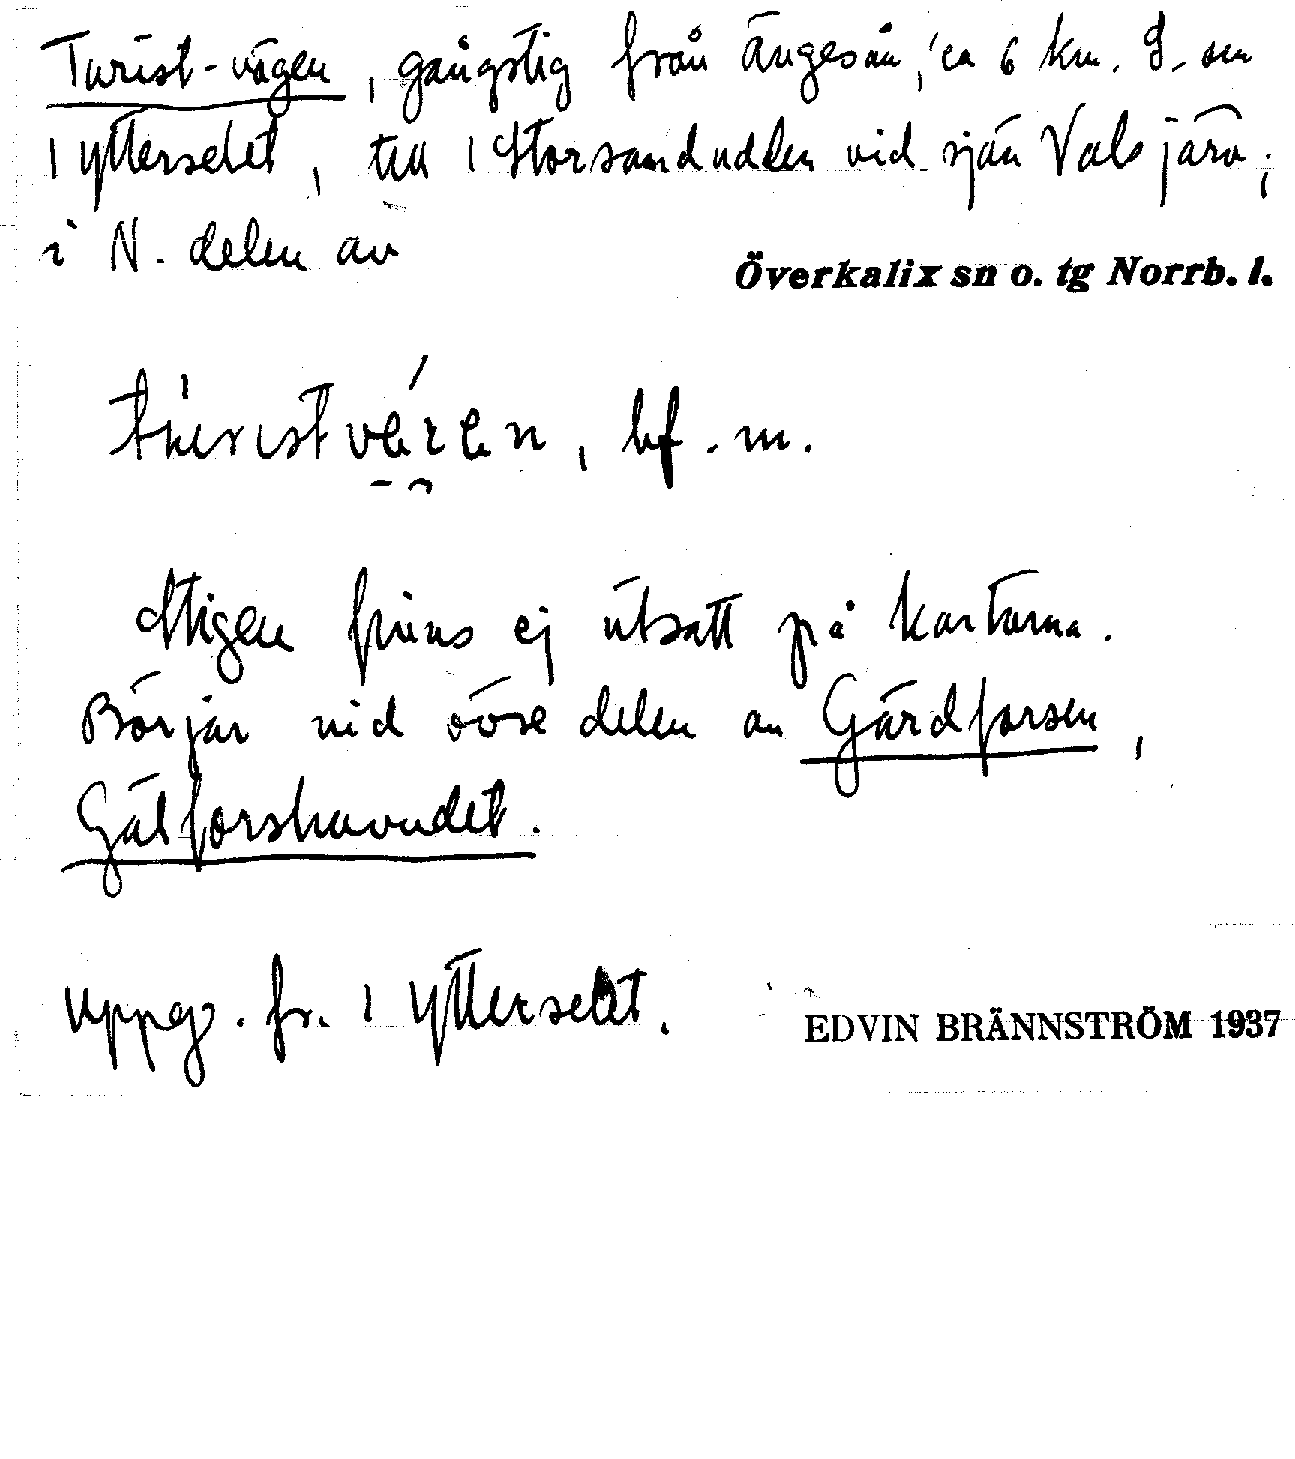 Turist-vägen, gångstig från Ängesån, ca 6 km. S. om
| Ytterselet, till | Storsandudden vid sjön Valsjärv;
i N. delen av
Överkalix sn o. tg Norrb. l.
bf. m.
Stigen finns ej utsatt på kartorna.
Börjar vid övre delen av Gärdforsen,
Gälforshuvudet.
uppg. fr. | Ytterselet.
EDVIN BRÄNNSTRÖM 1937